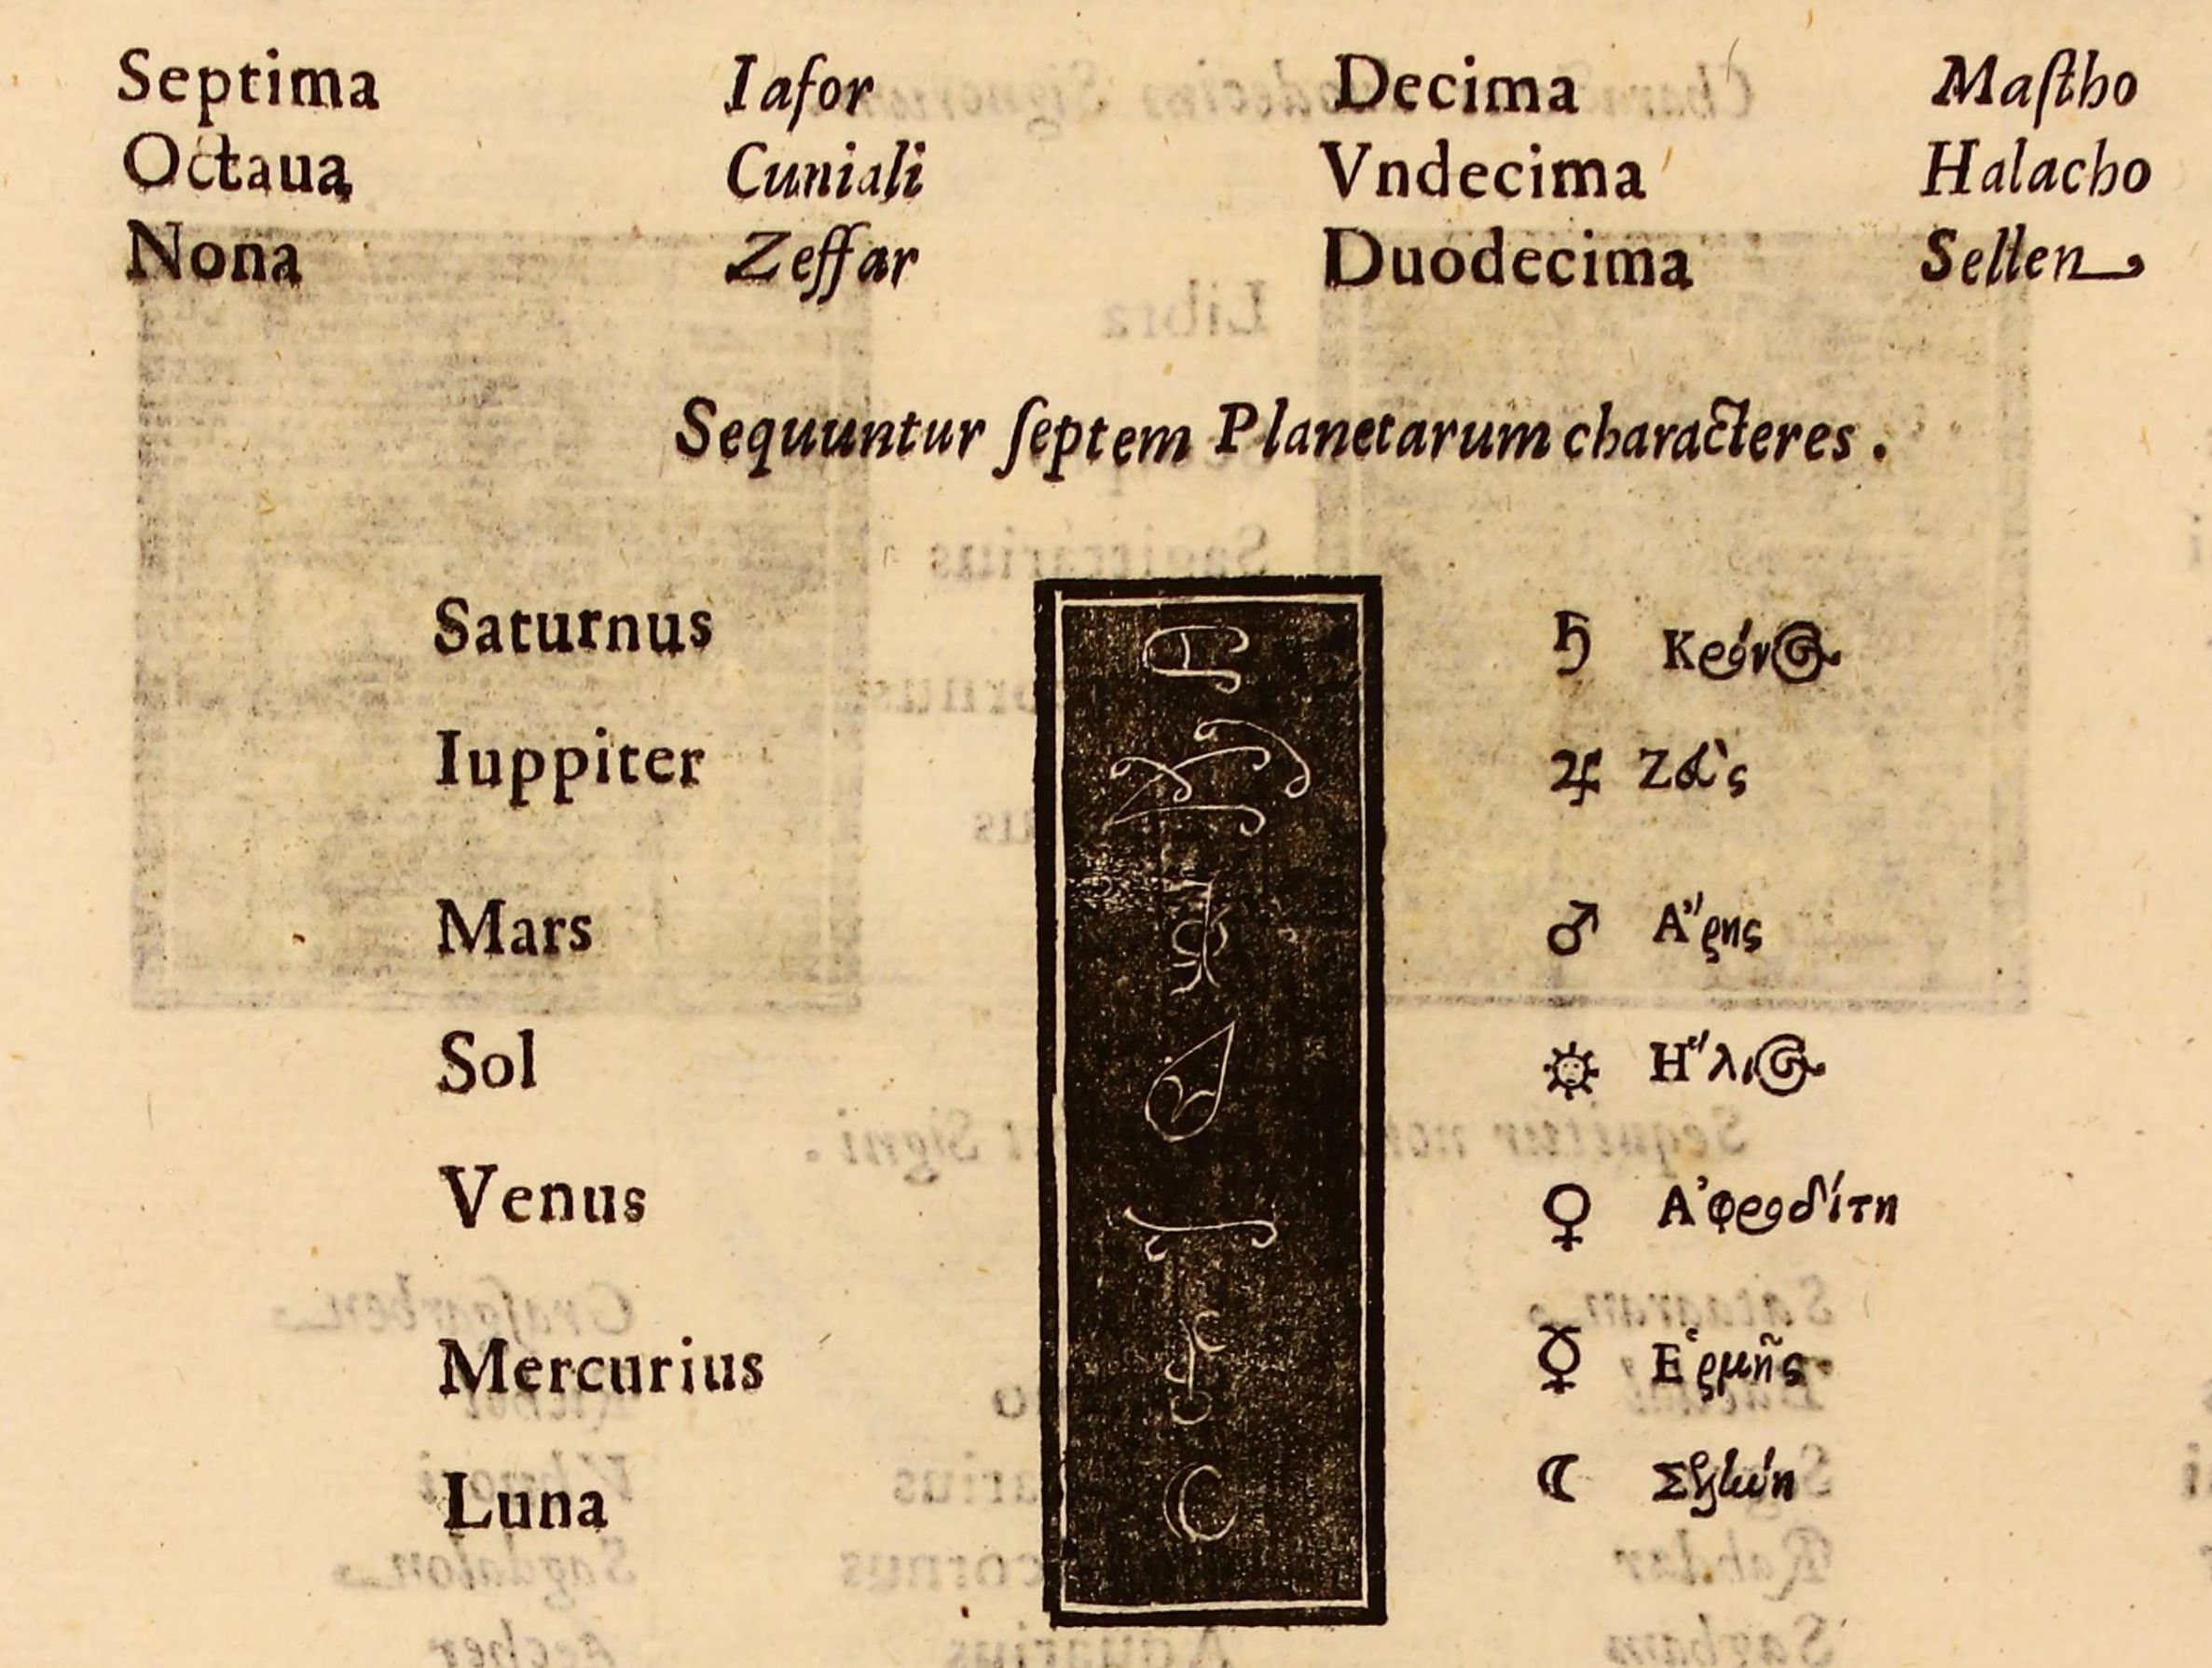 Septima Iafor Decima Maſtho
Octaua Cuniali Vndecima Halacho
Nona Zeffar Duodecima Sellen
Sequuntur ſeptem Planetarum characteres.
Saturnus ♄ Κρόνος
Iuppiter ♃ Ζὰς
Mars ♂ Ἄρης
Sol ☼ Ἥλιος
Venus ♀ Ἀφροδίτη
Mercurius ☿ Ἑρμῆς
Luna ☾ Σελήνη